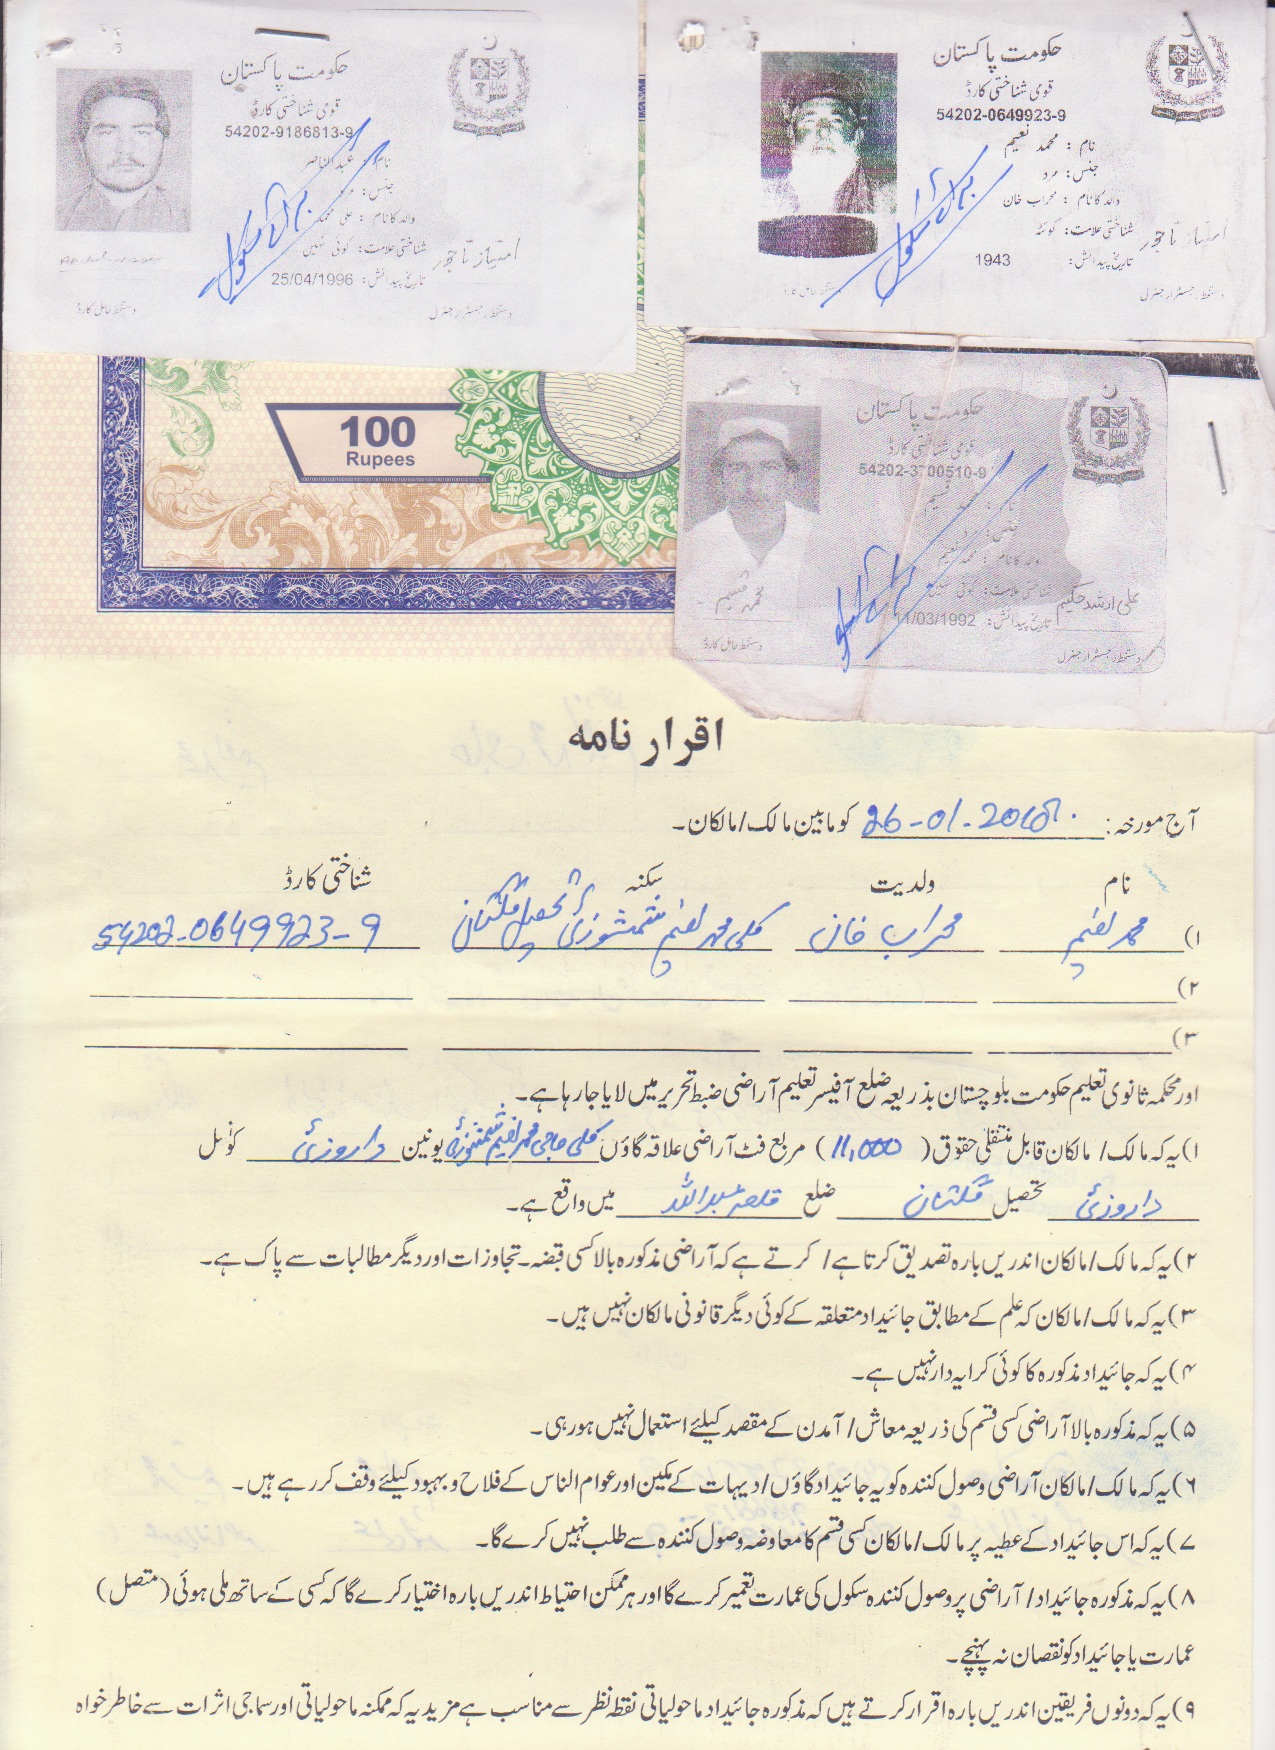 حکومت پاکستان
قومی شناختی کارڈ
54202-9186813-9
نام : عبدالناصر
جنس: مرد
والد کا نام : علی محمد
شناختی علامت: کوئی نہیں
تاریخ پیدائش: 25/04/1996
امتیاز تاجور
دستخط حامل کارڈ
دستخط رجسٹرار جنرل
حکومت پاکستان
قومی شناختی کارڈ
54202-0649923-9
نام : محمد نعیم
جنس: مرد
والد کا نام : محراب خان
شناختی علامت: کوئٹہ
تاریخ پیدائش: 1943
امتیاز تاجور
دستخط رجسٹرار جنرل
100
Rupees
حکومت پاکستان
قومی شناختی کارڈ
نام :
جنس:
والد کا نام : محمد نعیم
شناختی علامت: کوئی نہیں
تاریخ پیدائش: 11/03/1992
علی ارشد حکیم
دستخط حامل کارڈ
دستخط رجسٹرار جنرل
اقرار نامہ
آج مورخہ: 26-01-201 کو مابین مالک/مالکان۔
نام ولدیت سکنہ شناختی کارڈ
۱) محمد نعیم محراب خان کلی محمد نعیم شمشوزئی تحصیل گلستان 54202-0649923-9
۲)
۳)
اور محکمہ ثانوی تعلیم حکومت بلوچستان بذریعہ ضلع آفیسر تعلیم آراضی ضبط تحریر میں لایا جا رہا ہے۔
۱) یہ کہ مالک/ مالکان قابل منتقلی حقوق ( 11,000 ) مربع فٹ آراضی علاقہ گاؤں کلی حاجی محمد نعیم شمشوزئی یونین داروزئی کونسل
داروزئی تحصیل گلستان ضلع قلعہ عبداللہ میں واقع ہے۔
۲) یہ کہ مالک/مالکان اندریں بارہ تصدیق کرتا ہے/ کرتے ہے کہ آراضی مذکورہ بالا کسی قبضہ۔ تجاوزات اور دیگر مطالبات سے پاک ہے۔
۳) یہ کہ مالک/مالکان کہ علم کے مطابق جائیداد متعلقہ کے کوئی دیگر قانونی مالکان نہیں ہیں۔
۴) یہ کہ جائیداد مذکورہ کا کوئی کرایہ دار نہیں ہے۔
۵) یہ کہ مذکورہ بالا آراضی کسی قسم کی ذریعہ معاش/ آمدن کے مقصد کیلئے استعمال نہیں ہو رہی۔
۶) یہ کہ مالک/ مالکان آراضی وصول کنندہ کو یہ جائیداد گاؤں/ دیہات کے مکین اور عوام الناس کے فلاح و بہبود کیلئے وقف کر رہے ہیں۔
۷) یہ کہ اس جائیداد کے عطیہ پر مالک/ مالکان کسی قسم کا معاوضہ وصول کنندہ سے طلب نہیں کرے گا۔
۸) یہ کہ مذکورہ جائیداد/ آراضی پر وصول کنندہ سکول کی عمارت تعمیر کرے گا اور ہر ممکن احتیاط اندریں بارہ اختیار کرے گا کہ کسی کے ساتھ ملی ہوئی (متصل)
عمارت یا جائیداد کو نقصان نہ پہنچے۔
۹) یہ کہ دونوں فریقین اندریں بارہ اقرار کرتے ہیں کہ مذکورہ جائیداد ماحولیاتی نقطہ نظر سے مناسب ہے مزید یہ کہ ممکنہ ماحولیاتی اور سماجی اثرات سے خاطر خواہ